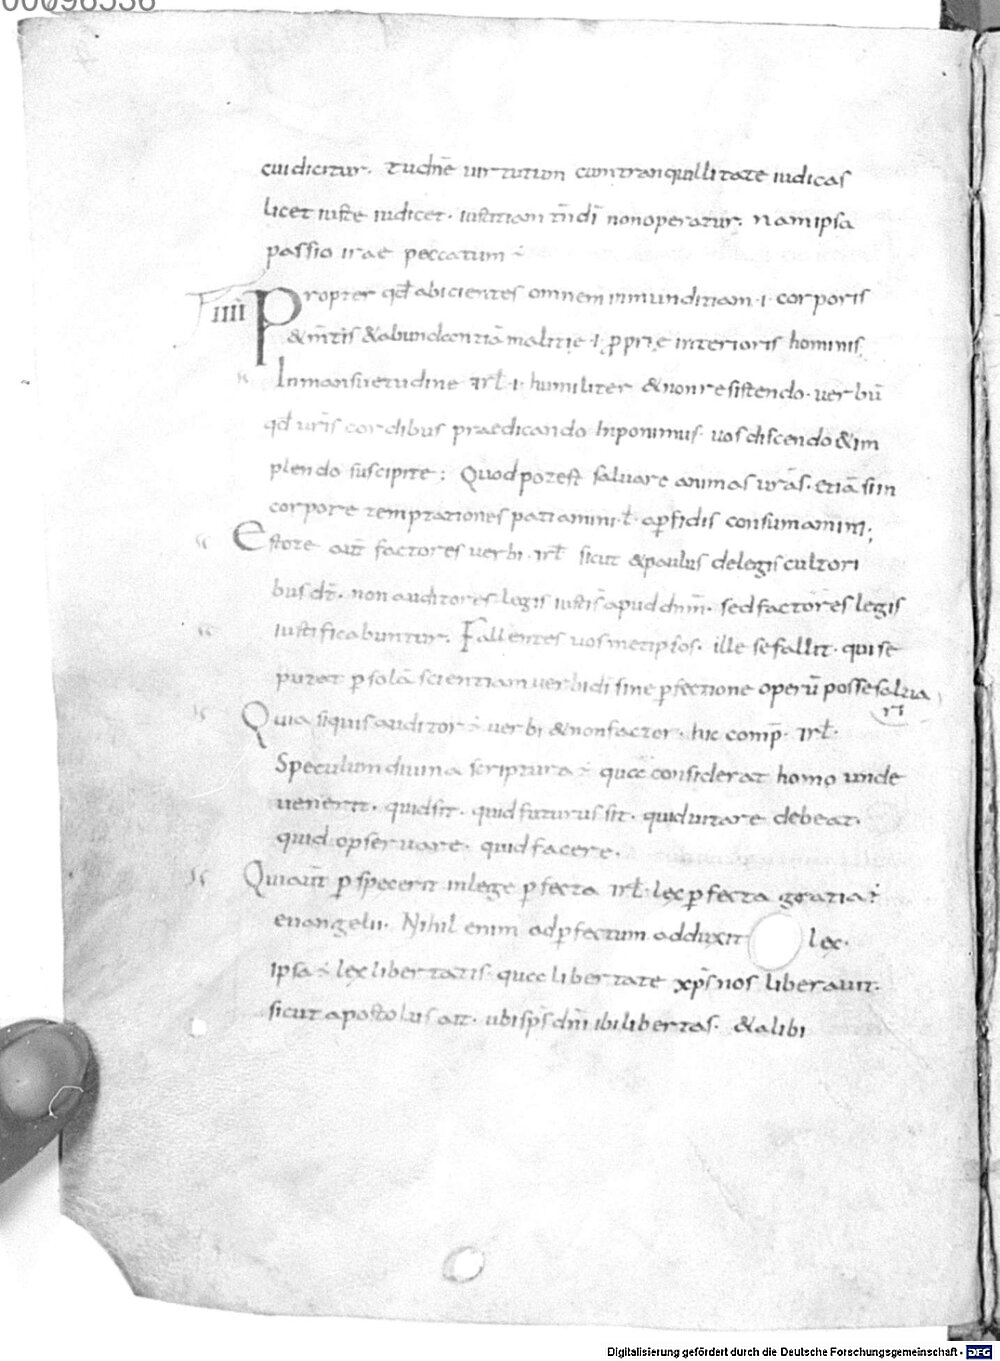 00096536
cui dicitur. tu dn̄e uirtutum cum tranquillitate iudicas
licet iuste iudicet. iustitiam tn̄ dī non operatur. nam ipsa
passio irae peccatum ÷
IIII Propter qđ abicientes omnem inmunditiam .i. corporis
& m̄tis & abundantiā malitię .i. ꝓprię interioris hominis
In mansuetudine irł .i. humiliter & non resistendo. uerbū
qđ ur̄is cordibus praedicando Inponimus. uos discendo & im
plendo suscipite: Quod potest saluare animas ur̄as. etiā si in
corpore temptationes patiamini. ł ap̄fidis consumamini;
Estote aūt factores uerbi. irł sicut & paulus de legis cultori
bus dr̄. non auditores legis iusti s̄ apud dn̄m. sed factores legis
iustificabuntur. Fallentes uosmetipsos. ille se fallit. qui se
putat ꝑ solā scientiam uerbi dī sine ꝑfectione operū posse salua
ri
Quia siquis auditor ÷ uerbi & non factor. hic comp̄. irł.
Speculum diuina scriptura ÷ quae considerat homo unde
uenerit. quid sit. quid futurus sit. quid uitare debeat.
quid opseruare. quid facere.
Qui aūt ꝑspexerit in lege ꝑfecta irł. lex ꝑfecta gratia ÷
euangelii. Nihil enim ad ꝑfectum adduxit lex.
ipsa ÷ lex libertatis. quae libertate xp̄s nos liberauit.
sicut apostolus ait. ubi sp̄s dn̄i ibi libertas. & alibi
Digitalisierung gefördert durch die Deutsche Forschungsgemeinschaft - DFG